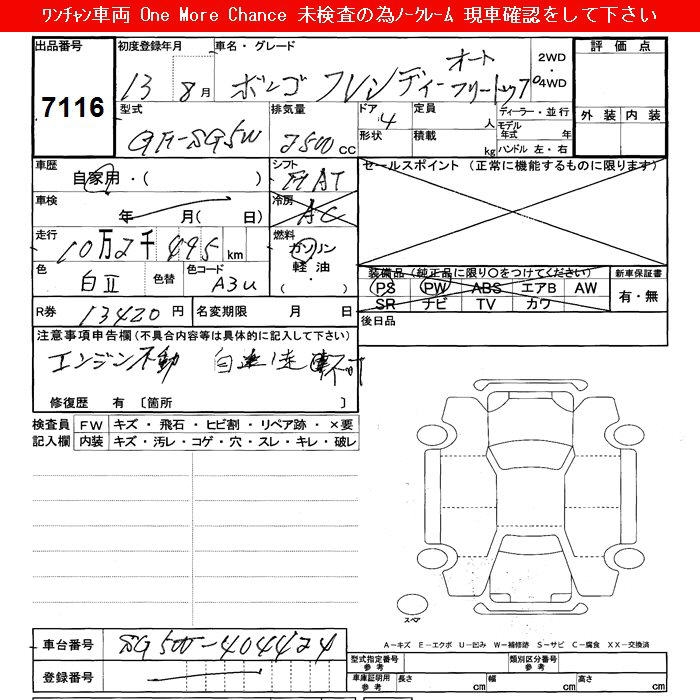 ﾜﾝﾁｬﾝ車両 One More Chance 未検査の為ﾉｰｸﾚｰﾑ 現車確認をして下さい
出品番号 初度登録年月 車名・グレード 2WD 評価点
13 8月 ボンゴ フレンディー オート フリートップ 4WD
7116
型式 排気量 ドア 定員 ディーラー・並行 外装 内装
GF-SG5W 2500cc 4 人 モデル年式 年
形状 積載 kg ハンドル 左・右
車歴 シフト セールスポイント (正常に機能するものに限ります)
自家用・( ) FAT
車検 冷房
年 月( 日) AC
走行 燃料
10万2千495km ガソリン
軽油・( )
色 色替 色コード 装備品(純正品に限り○をつけてください) 新車保証書
白II A3U PS PW ABS エアB AW 有・無
SR ナビ TV カワ
R券 13420円 名変期限 月 日 後日品
注意事項申告欄(不具合内容等は具体的に記入して下さい)
エンジン不動 自走不可
修復歴 有 〔箇所 〕
検査員 FW キズ・飛石・ヒビ割・リペア跡・×要
記入欄 内装 キズ・汚レ・コゲ・穴・スレ・キレ・破レ
スペア
A-キズ E-エクボ U-凹み W-補修跡 S-サビ C-腐食 XX-交換済
車台番号 SG5W-404424
型式指定番号 参考 類別区分番号 参考
登録番号 車庫証明用 参考 長さ cm 幅 cm 高さ cm